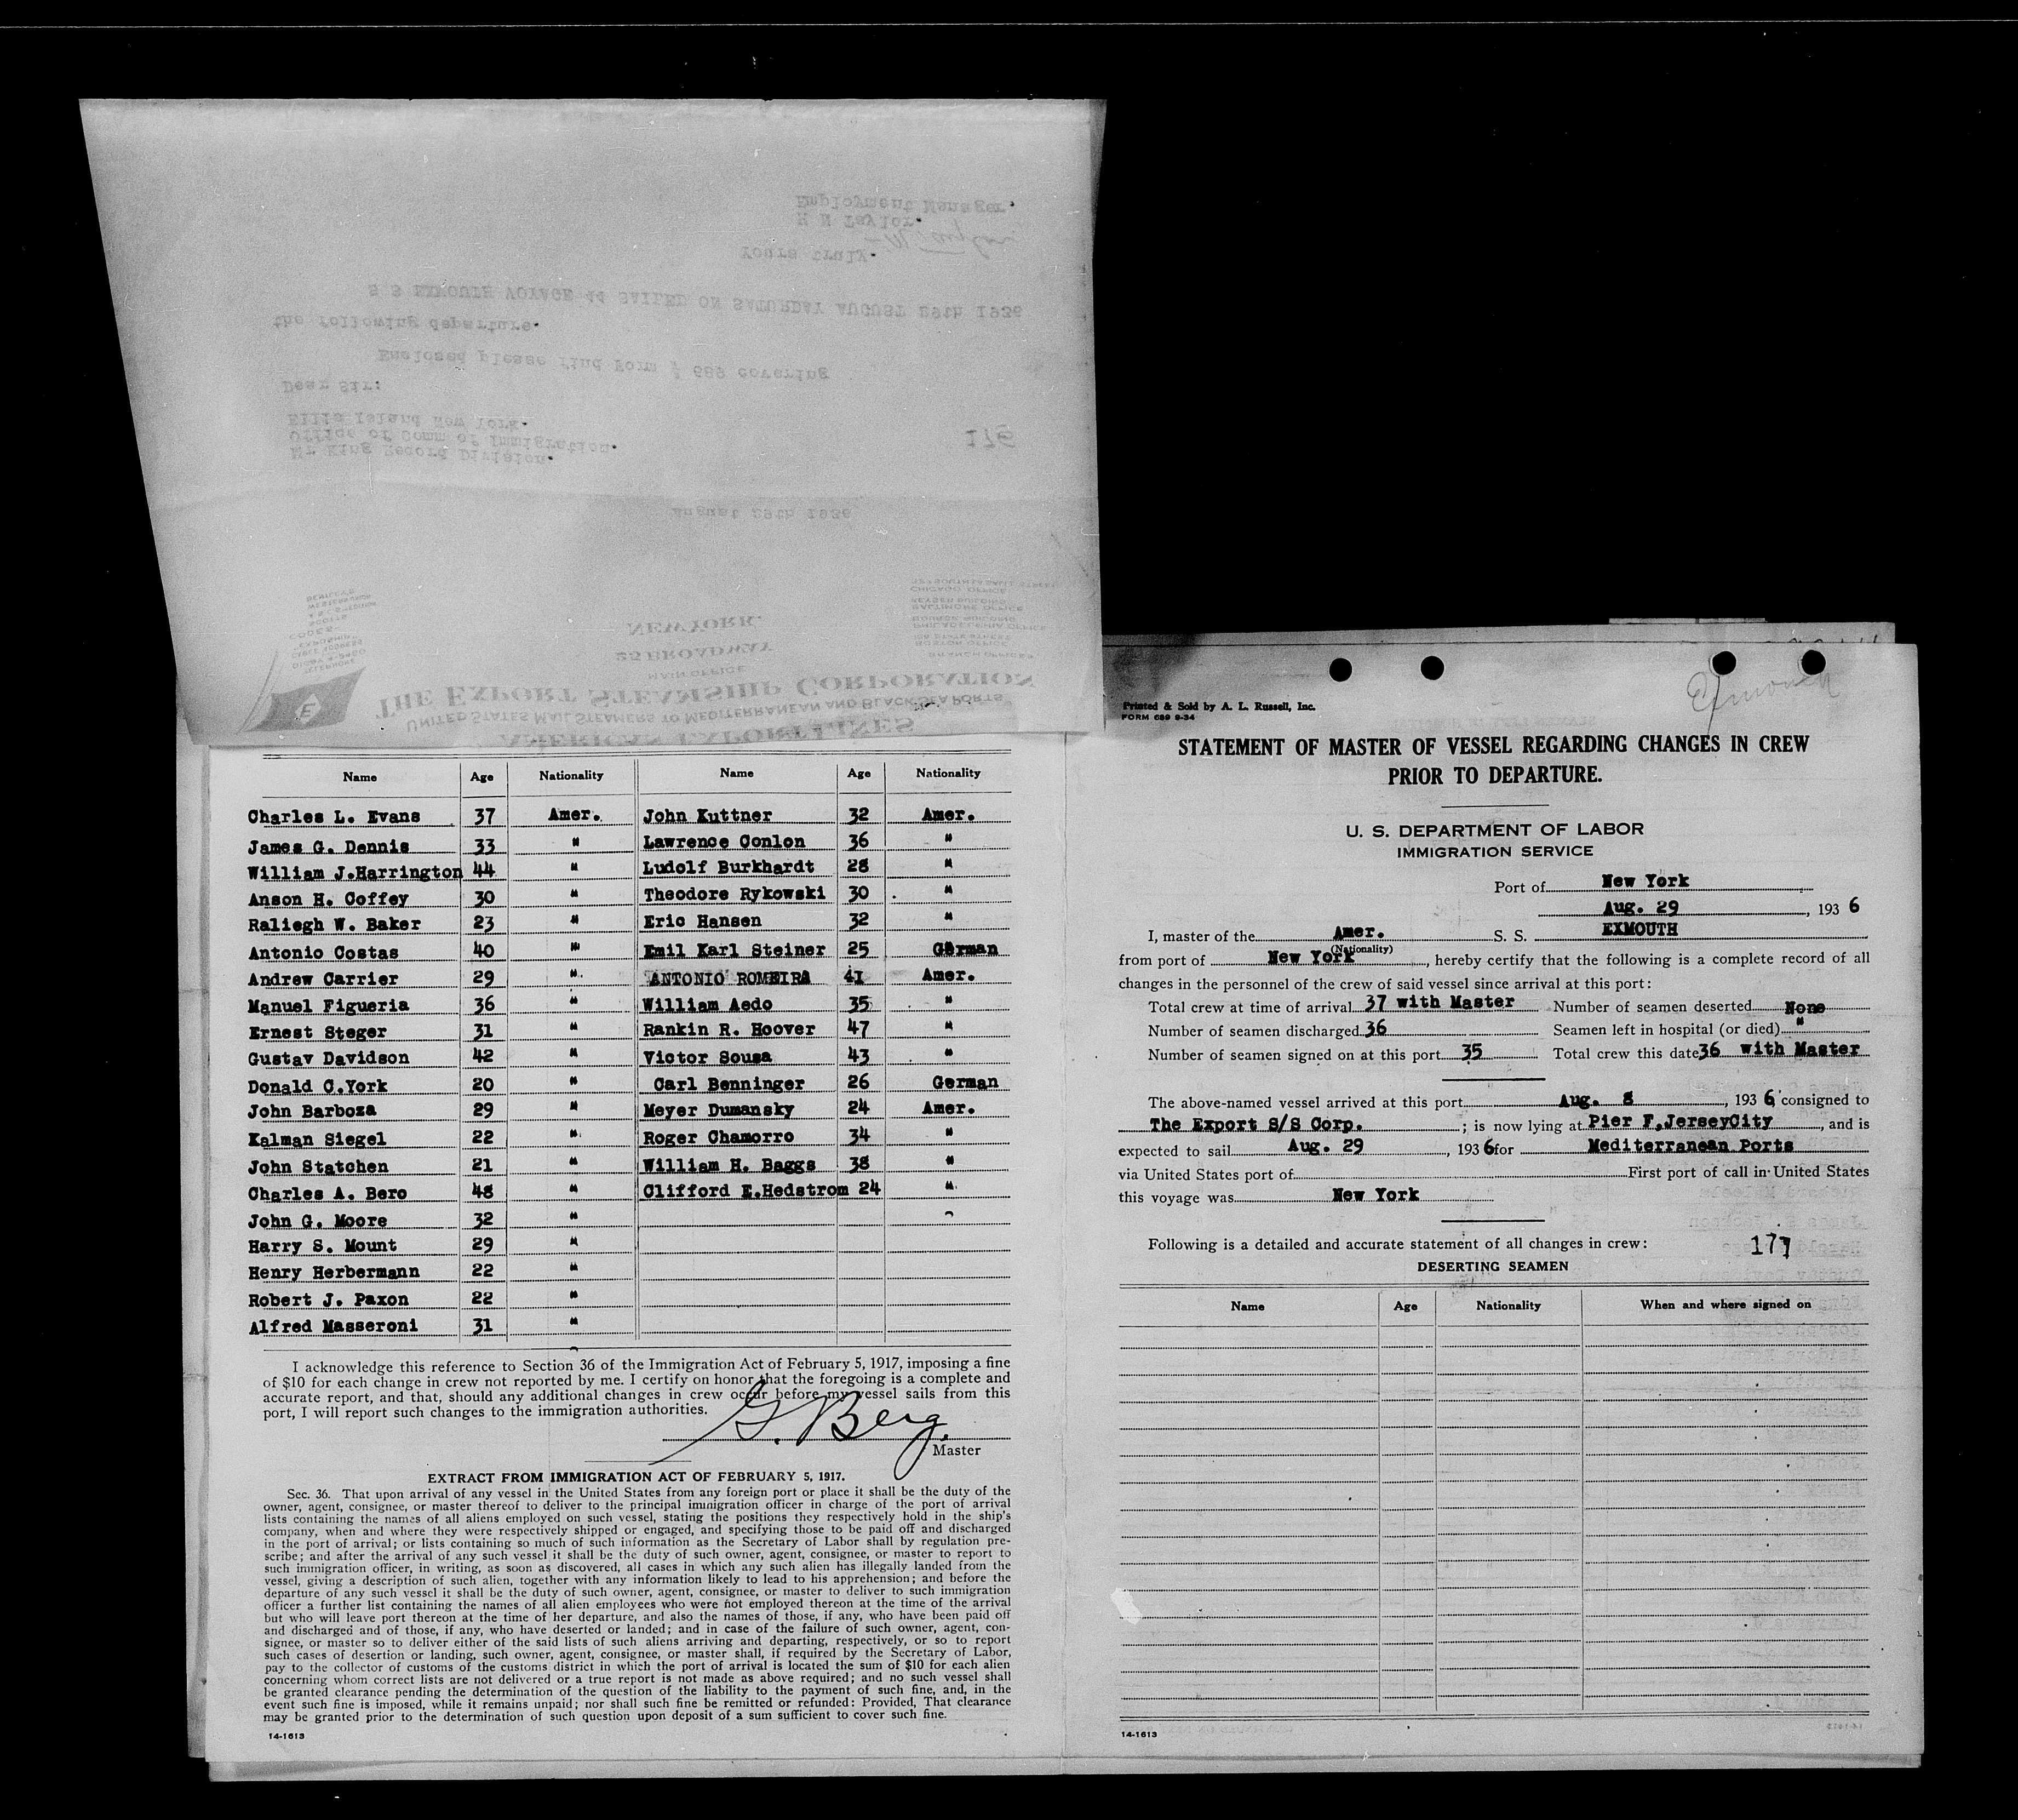 AMERICAN EXPORT LINES
UNITED STATES MAIL STEAMERS TO MEDITERRANEAN AND BLACK SEA PORTS
THE EXPORT STEAMSHIP CORPORATION
MAIN OFFICE
25 BROADWAY
NEW YORK
TELEPHONE
CABLE ADDRESS
CODES
E
BRANCH OFFICES
BOSTON OFFICE
PHILADELPHIA OFFICE
BOURSE BUILDING
BALTIMORE OFFICE
KEYSER BUILDING
CHICAGO OFFICE
August 29th 1936
Mr King Record Division.
Office of Comm of Immigration.
Ellis Island New York.
175
Dear Sir:
Enclosed please find Form # 689 covering
the following departure.
S S EXMOUTH VOYAGE 44 SAILED ON SATURDAY AUGUST 29th 1936
Yours truly.
Taylor.
Employment Manager.
Name Age Nationality Name Age Nationality
Charles L. Evans 37 Amer. John Kuttner 32 Amer.
James G. Dennis 33 " Lawrence Conlon 36 "
William J.Harrington 44 " Ludolf Burkhardt 28 "
Anson H. Coffey 30 " Theodore Rykowski 30 "
Raliegh W. Baker 23 " Eric Hansen 32 "
Antonio Costas 40 " Emil Karl Steiner 25 German
Andrew Carrier 29 " ANTONIO ROMEIRA 41 Amer.
Manuel Figueria 36 " William Aedo 35 "
Ernest Steger 31 " Rankin R. Hoover 47 "
Gustav Davidson 42 " Victor Sousa 43 "
Donald C.York 20 " Carl Benninger 26 German
John Barboza 29 " Meyer Dumansky 24 Amer.
Kalman Siegel 22 " Roger Chamorro 34 "
John Statchen 21 " William H. Baggs 38 "
Charles A. Bero 48 " Clifford E.Hedstrom 24 "
John G. Moore 32 "
Harry S. Mount 29 "
Henry Herbermann 22 "
Robert J. Paxon 22 "
Alfred Masseroni 31 "
I acknowledge this reference to Section 36 of the Immigration Act of February 5, 1917, imposing a fine
of $10 for each change in crew not reported by me. I certify on honor that the foregoing is a complete and
accurate report, and that, should any additional changes in crew occur before my vessel sails from this
port, I will report such changes to the immigration authorities.
G. Berg.
Master
EXTRACT FROM IMMIGRATION ACT OF FEBRUARY 5, 1917.
Sec. 36. That upon arrival of any vessel in the United States from any foreign port or place it shall be the duty of the
owner, agent, consignee, or master thereof to deliver to the principal immigration officer in charge of the port of arrival
lists containing the names of all aliens employed on such vessel, stating the positions they respectively hold in the ship's
company, when and where they were respectively shipped or engaged, and specifying those to be paid off and discharged
in the port of arrival; or lists containing so much of such information as the Secretary of Labor shall by regulation pre-
scribe; and after the arrival of any such vessel it shall be the duty of such owner, agent, consignee, or master to report to
such immigration officer, in writing, as soon as discovered, all cases in which any such alien has illegally landed from the
vessel, giving a description of such alien, together with any information likely to lead to his apprehension; and before the
departure of any such vessel it shall be the duty of such owner, agent, consignee, or master to deliver to such immigration
officer a further list containing the names of all alien employees who were not employed thereon at the time of the arrival
but who will leave port thereon at the time of her departure, and also the names of those, if any, who have been paid off
and discharged and of those, if any, who have deserted or landed; and in case of the failure of such owner, agent, con-
signee, or master so to deliver either of the said lists of such aliens arriving and departing, respectively, or so to report
such cases of desertion or landing, such owner, agent, consignee, or master shall, if required by the Secretary of Labor,
pay to the collector of customs of the customs district in which the port of arrival is located the sum of $10 for each alien
concerning whom correct lists are not delivered or a true report is not made as above required; and no such vessel shall
be granted clearance pending the determination of the question of the liability to the payment of such fine, and, in the
event such fine is imposed, while it remains unpaid; nor shall such fine be remitted or refunded: Provided, That clearance
may be granted prior to the determination of such question upon deposit of a sum sufficient to cover such fine.
14-1613
Exmouth
Printed & Sold by A. L. Russell, Inc.
FORM 689 9-34
STATEMENT OF MASTER OF VESSEL REGARDING CHANGES IN CREW
PRIOR TO DEPARTURE.
U. S. DEPARTMENT OF LABOR
IMMIGRATION SERVICE
Port of New York
Aug. 29, 1936
I, master of the Amer. S. S. EXMOUTH
(Nationality)
from port of New York, hereby certify that the following is a complete record of all
changes in the personnel of the crew of said vessel since arrival at this port:
Total crew at time of arrival 37 with Master Number of seamen deserted None
Number of seamen discharged 36 Seamen left in hospital (or died) "
Number of seamen signed on at this port 35 Total crew this date 36 with Master
The above-named vessel arrived at this port Aug. 8, 1936, consigned to
The Export S/S Corp.; is now lying at Pier F,JerseyCity, and is
expected to sail Aug. 29, 1936 for Mediterranean Ports
via United States port of First port of call in United States
this voyage was New York
Following is a detailed and accurate statement of all changes in crew: 177
DESERTING SEAMEN
Name Age Nationality When and where signed on
14-1613